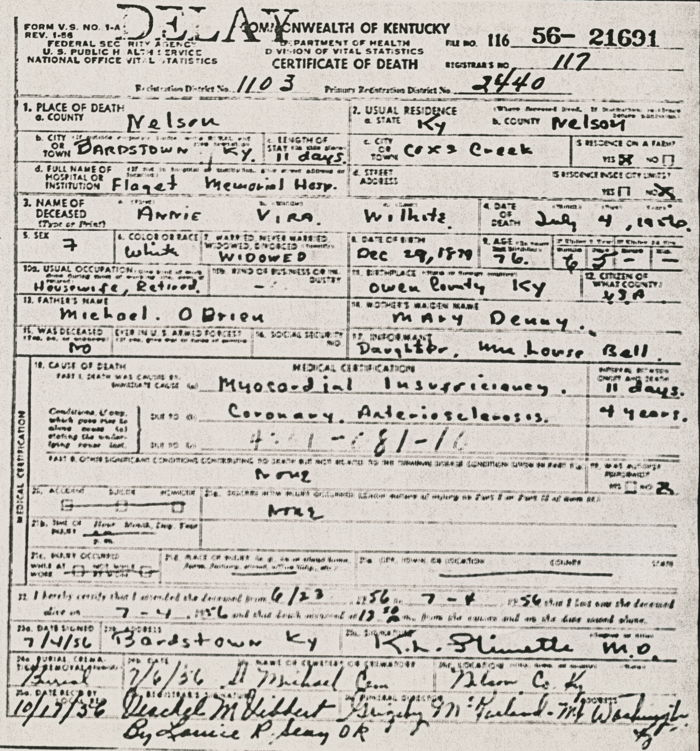 DELAY
FORM V.S. NO. 1-A
REV. 1-56
FEDERAL SECURITY AGENCY
U. S. PUBLIC HEALTH SERVICE
NATIONAL OFFICE VITAL STATISTICS
COMMONWEALTH OF KENTUCKY
DEPARTMENT OF HEALTH
DIVISION OF VITAL STATISTICS
CERTIFICATE OF DEATH
FILE NO. 116 56- 21691
REGISTRAR'S NO 117
Registration District No. 1103 Primary Registration District No. 2440
1. PLACE OF DEATH
a. COUNTY Nelson
2. USUAL RESIDENCE
a. STATE Ky b. COUNTY Nelson
b. CITY OR TOWN BARDSTOWN, Ky. c. LENGTH OF STAY 11 days.
c. CITY OR TOWN Coxs Creek IS RESIDENCE ON A FARM? YES NO
d. FULL NAME OF HOSPITAL OR INSTITUTION Flaget Memorial Hosp.
d. STREET ADDRESS IS RESIDENCE INSIDE CITY LIMITS? YES NO
3. NAME OF DECEASED (Type or Print) ANNIE VIRA Wilhite
4. DATE OF DEATH July 4, 1956
5. SEX F 6. COLOR OR RACE White 7. MARRIED, NEVER MARRIED, WIDOWED, DIVORCED WIDOWED
8. DATE OF BIRTH Dec 29, 1879 9. AGE 76. 6 5
10a. USUAL OCCUPATION Housewife, Retired 10b. KIND OF BUSINESS OR INDUSTRY
11. BIRTHPLACE Owen County Ky 12. CITIZEN OF WHAT COUNTRY? USA
13. FATHER'S NAME
Michael. O'Brien
14. MOTHER'S MAIDEN NAME
MARY Denny.
15. WAS DECEASED EVER IN U. S. ARMED FORCES? NO 16. SOCIAL SECURITY
17. INFORMANT
Daughter, Louise Bell.
18. CAUSE OF DEATH MEDICAL CERTIFICATION
PART I. DEATH WAS CAUSED BY: IMMEDIATE CAUSE (a) Myocardial Insufficiency. 11 days.
Conditions, if any, which gave rise to above cause (a) stating the underlying cause last.
DUE TO (b) Coronary Arteriosclerosis. 4 years.
DUE TO (c)
PART II. OTHER SIGNIFICANT CONDITIONS CONTRIBUTING TO DEATH BUT NOT RELATED TO THE TERMINAL DISEASE CONDITION GIVEN IN PART I(a)
None
19. WAS AUTOPSY PERFORMED? YES NO
ACCIDENT SUICIDE HOMICIDE
None
MEDICAL CERTIFICATION
INJURY OCCURRED
WHILE AT WORK
22. I hereby certify that I attended the deceased from 6/23 1956 to 7-4 1956 that I last saw the deceased
alive on 7-4, 1956 and that death occurred at m., from the causes and on the date stated above.
23a. DATE SIGNED 7/4/56 ADDRESS Bardstown Ky SIGNATURE M.D.
Burial DATE 7/6/56 NAME OF CEMETERY OR CREMATORY St Michael Cem Nelson Co Ky
DATE REC'D BY LOCAL REG. 10/17/56 REGISTRAR'S SIGNATURE
FUNERAL DIRECTOR ADDRESS Mt Washington Ky
By Louise P. Seay DR